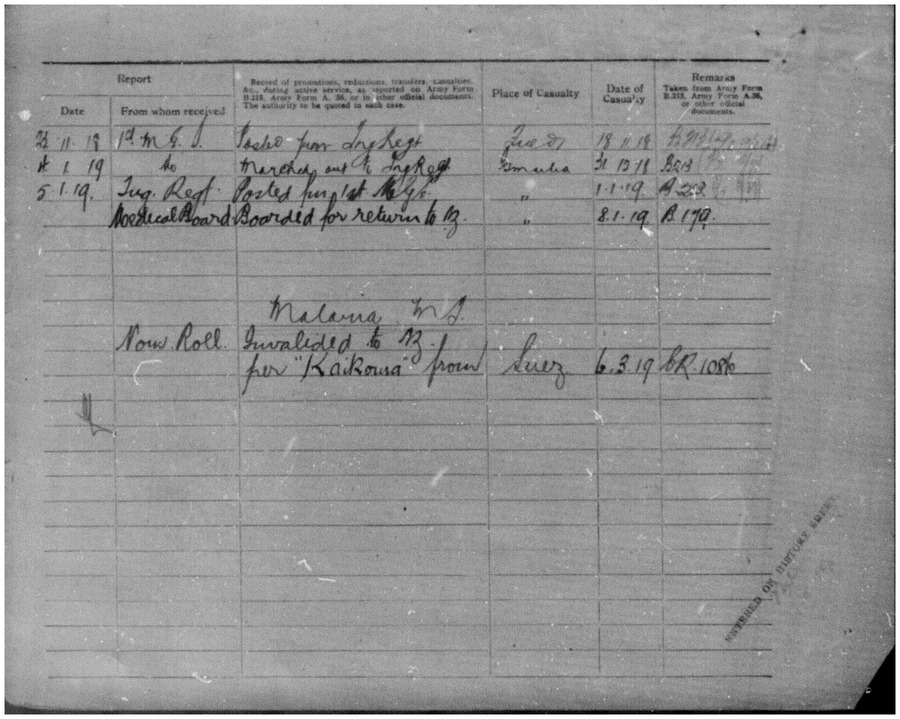 Report
Record of promotions, reductions, transfers, casualties,
&c., during active service, as reported on Army Form
B.213, Army Form A. 36, or in other official documents.
The authority to be quoted in each case.
Place of Casualty
Date of
Casualty
Remarks
Taken from Army Form
B.213, Army Form A.36,
or other official
documents.
Date
From whom received
11. 18 1st M. G. S. from Trg Regt 18 11 18
1 19 do Marched out to Trg Regt Ismailia 31 12 18 B213
5.1.19. Trg. Regt. Posted from 1st M.G.S. " 1.1.19. B.213
Medical Board Boarded for return to NZ. " 8.1.19. B.179.
Malaria M.T.
Nom. Roll. Invalided to NZ.
per "Kaikoura" from Suez 6.3.19 CR.1086
ENTERED ON HISTORY SHEET